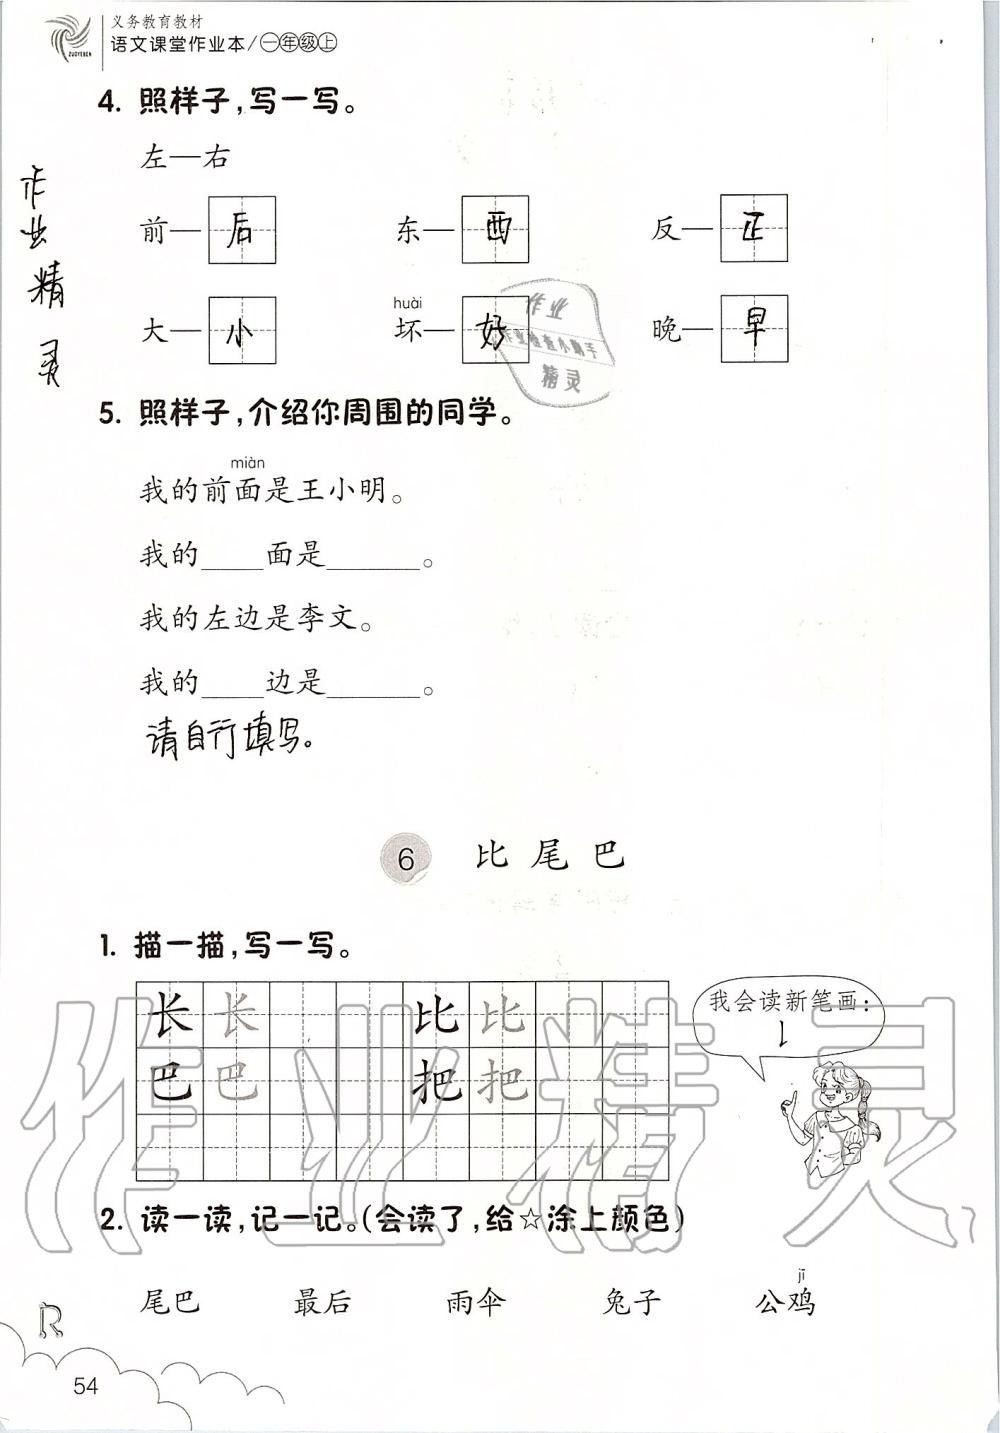 义务教育教材
语文课堂作业本/一年级上
ZUOYEBEN
4. 照样子,写一写。
左—右
前—后 东—西 反—正
huài
大—小 坏—好 晚—早
作业精灵
作业
作业检查小助手
精灵
5. 照样子,介绍你周围的同学。
miàn
我的前面是王小明。
我的____面是______。
我的左边是李文。
我的____边是______。
请自行填写。
6 比尾巴
1. 描一描,写一写。
长 长 比 比
巴 巴 把 把
我会读新笔画:
㇙
作业精灵
2. 读一读,记一记。(会读了,给☆涂上颜色)
jī
尾巴 最后 雨伞 兔子 公鸡
R
54